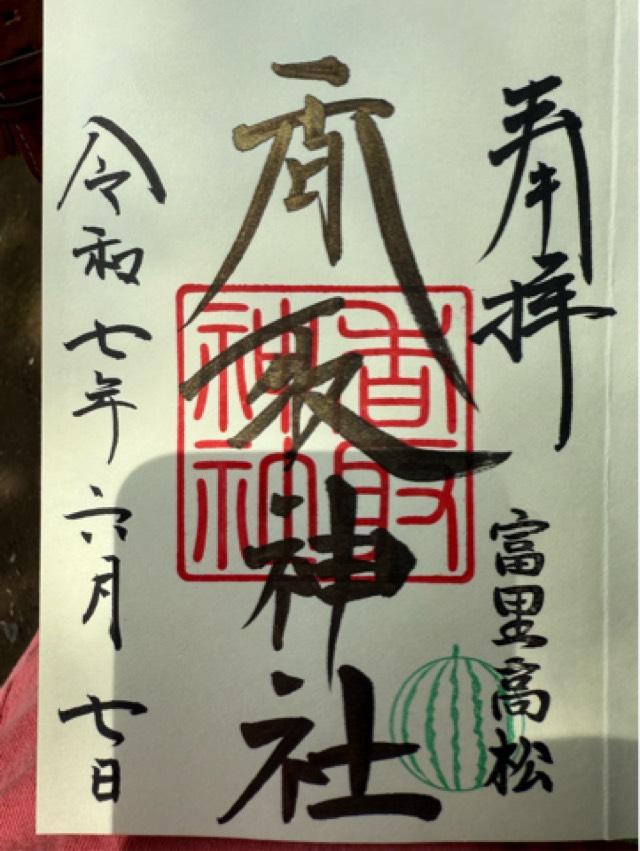 奉拝
富里高松
香取神社
香取
令和七年六月七日